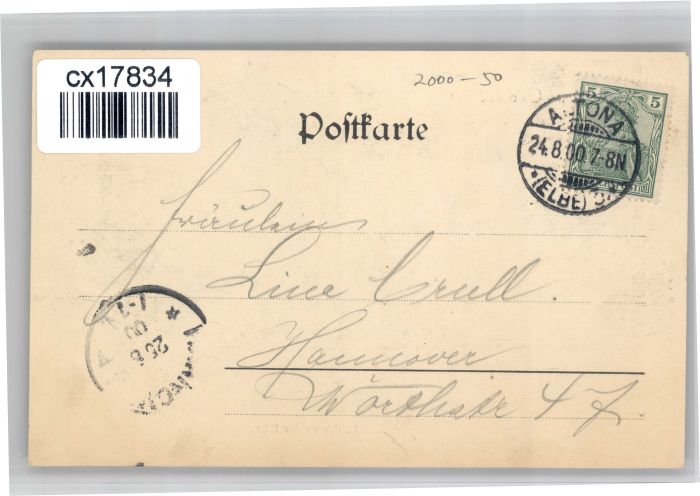 cx17834
2000-50
Postkarte
5 5
ALTONA
24.8.00 7-8N
*(ELBE)
Fräulein
Line Crull.
Hannover
Wörthstr 47.
25.8
00